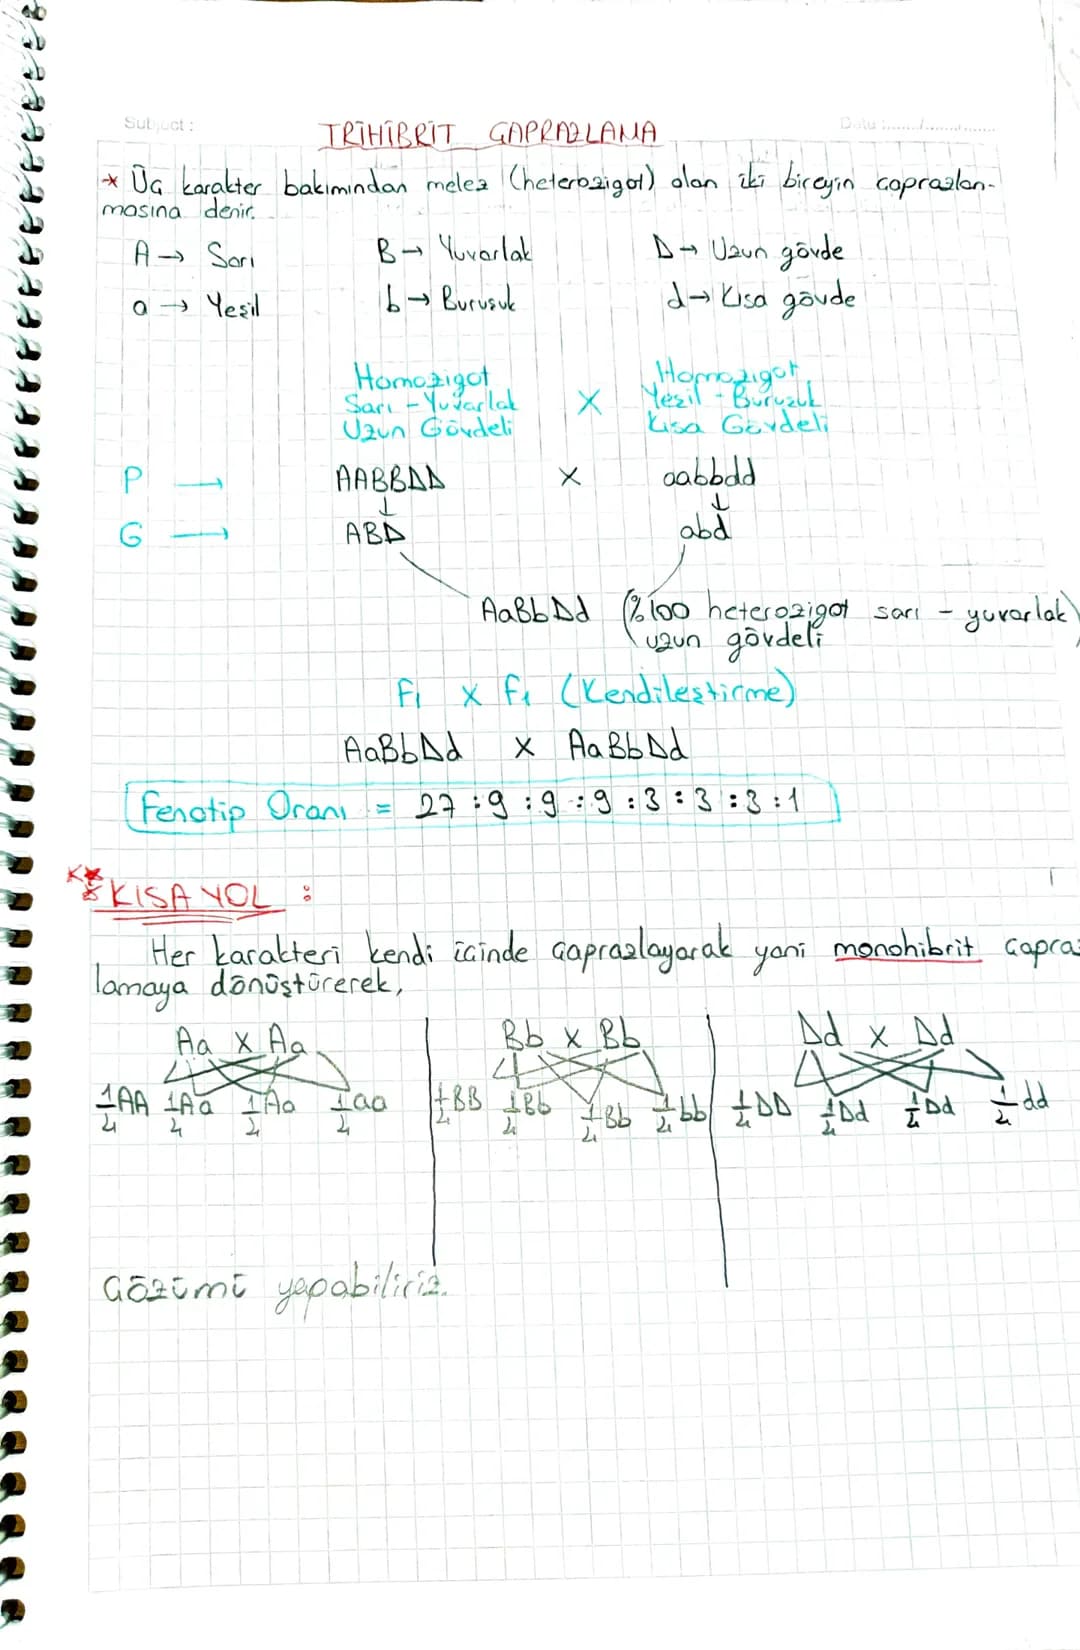 Subject : Date :....../......./...........
TRİHİBRİT ÇAPRAZLAMA
* Üç karakter bakımından melez (heterozigot) olan iki bireyin çaprazlan-
masına denir.
A → Sarı B → Yuvarlak D → Uzun gövde
a → Yeşil b → Buruşuk d → Kısa gövde
Homozigot Homozigot
Sarı - Yuvarlak X Yeşil - Buruşuk
Uzun Gövdeli Kısa Gövdeli
P → AABBDD X aabbdd
G → ABD abd
AaBbDd (%100 heterozigot sarı - yuvarlak)
uzun gövdeli
F1 x F1 (Kendileştirme)
AaBbDd x AaBbDd
Fenotip Oranı = 27 : 9 : 9 : 9 : 3 : 3 : 3 : 1
KISA YOL :
Her karakteri kendi içinde çaprazlayarak yani monohibrit çapraz
lamaya dönüştürerek,
Aa x Aa Bb x Bb Dd x Dd
1/4 AA 1/4 Aa 1/4 Aa 1/4 aa 1/4 BB 1/4 Bb 1/4 Bb 1/4 bb 1/4 DD 1/4 Dd 1/4 Dd 1/4 dd
Çözümü yapabiliriz.